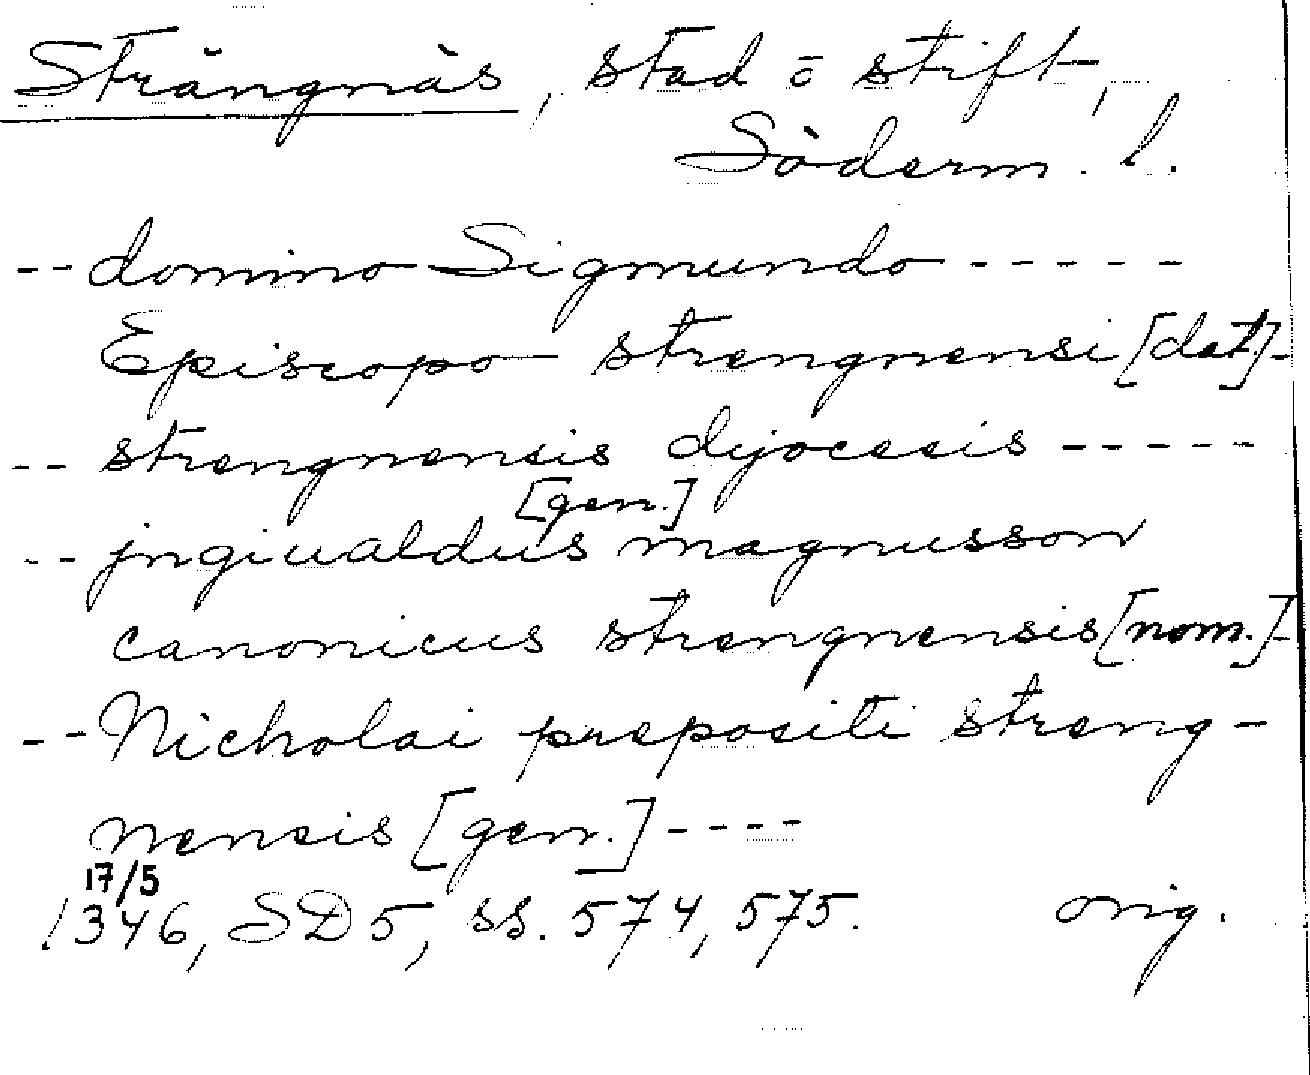 Strängnäs, stad o stift,
Söderm. l.
-- domino Sigmundo -----
Episcopo strengnensi [dat.]-
-- strengnensis dyocesis -----
[gen.]
-- jngiualdus magnusson
canonicus strengnensis [nom.]-
-- Nicholai prepositi streng-
nensis [gen.] ----
17/5
1346, SD 5, ss. 574, 575. orig.